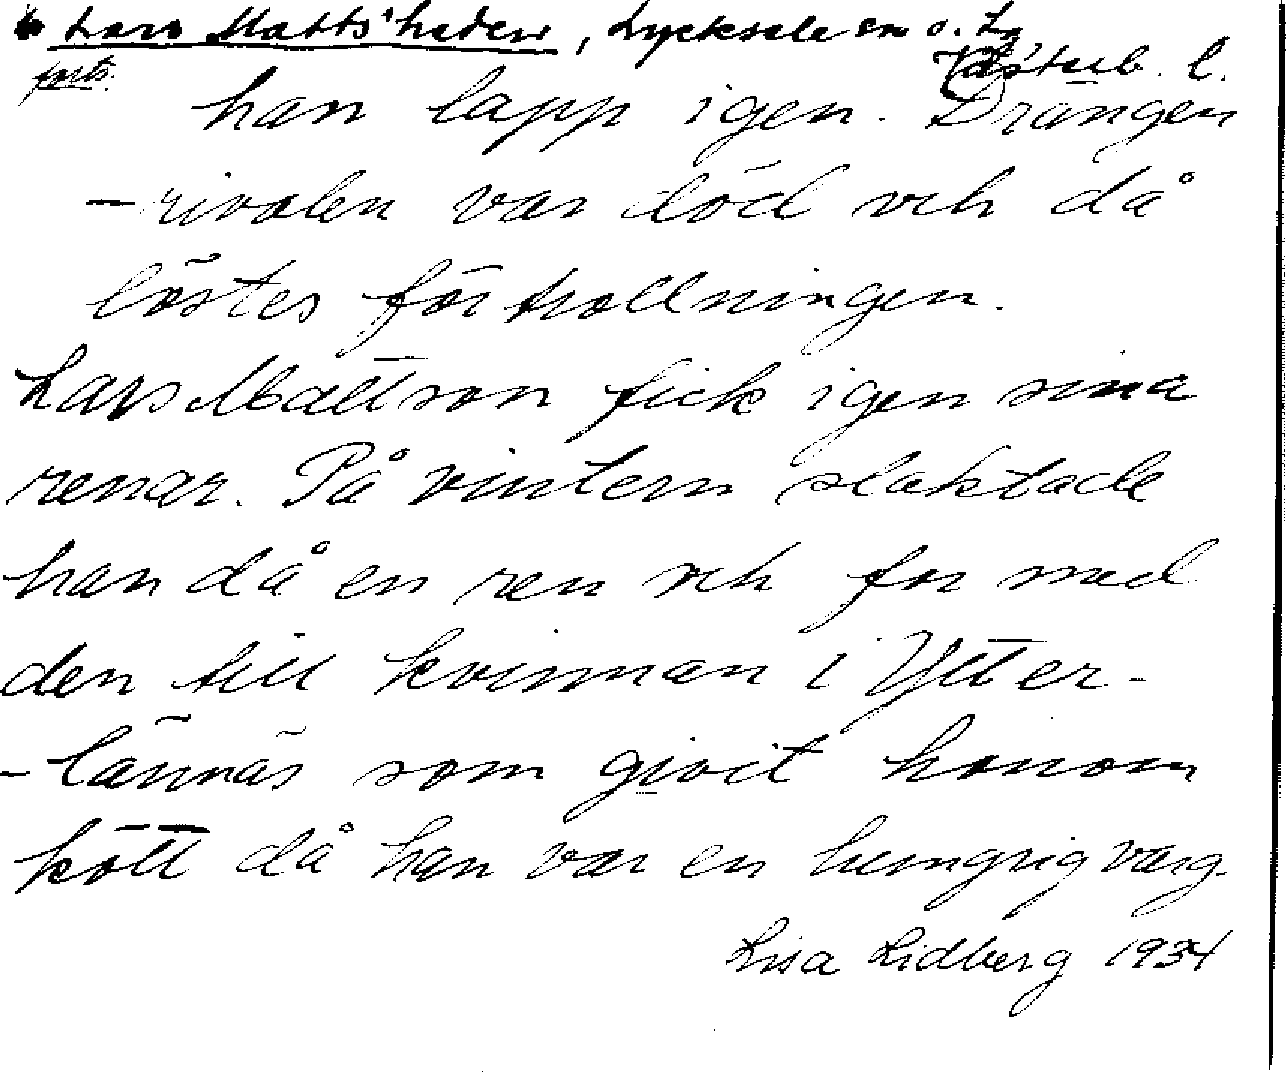 Lars Matts'heden, Lycksele sn o. La
Västerb. l.
forts.
han lapp igen. Drängen
-rivalen var död och då
löstes förtrollningen.
Lars Mattson fick igen sina
renar. På vintern slaktade
han då en ren och for med
den till kvinnan i Ytter-
-lännäs som givit honom
kött då han var en hungrig varg.
Lisa Lidberg 1934